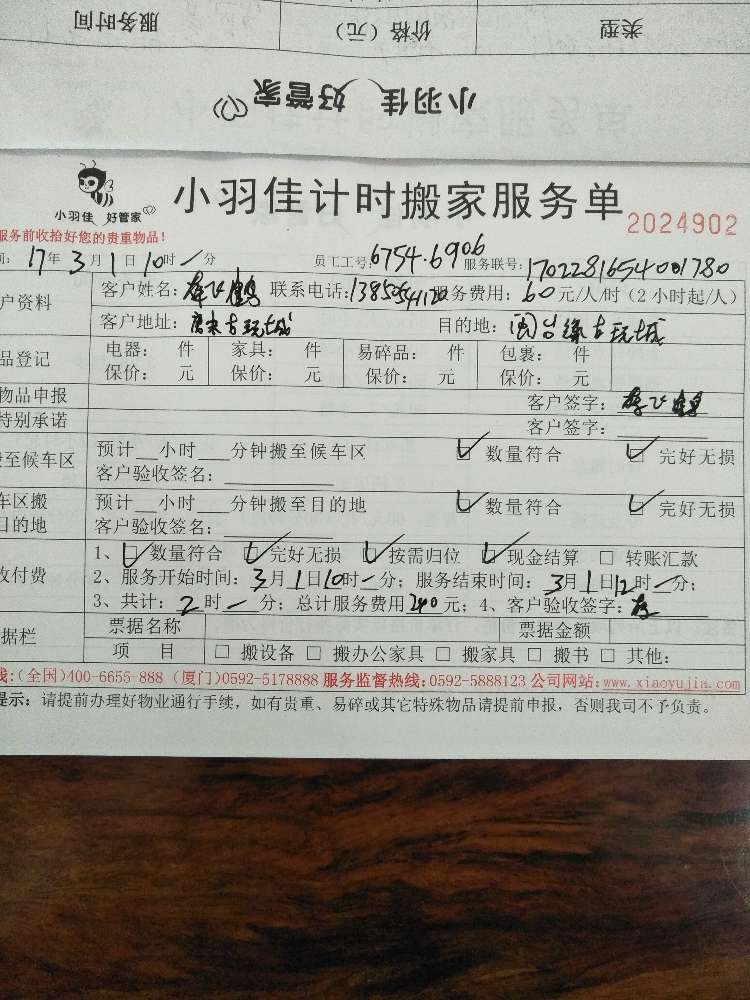 类型 价格（元） 服务时间
小羽佳 好管家
小羽佳 好管家
小羽佳计时搬家服务单 2024902
服务前收拾好您的贵重物品！
间：17年3月1日10时一分 员工工号：6754.6906 服务联号：1702281654001780
户资料 客户姓名： 联系电话： 服务费用：60元/人/时（2小时起/人）
客户地址：唐宋古玩城 目的地：闽台缘古玩城
品登记 电器： 件 家具： 件 易碎品： 件 包裹： 件
保价： 元 保价： 元 保价： 元 保价： 元
物品申报 客户签字：
特别承诺 客户签字：
至候车区 预计__小时___分钟搬至候车区 ☑ 数量符合 ☑ 完好无损
客户验收签名：
车区搬 预计__小时___分钟搬至目的地 ☑ 数量符合 ☑ 完好无损
目的地 客户验收签名：
收付费 1、☑ 数量符合 ☑ 完好无损 ☑ 按需归位 ☑ 现金结算 □ 转账汇款
2、服务开始时间：3月1日10时一分；服务结束时间：3月1日12时一分；
3、共计：2时一分；总计服务费用240元；4、客户验收签字：
据栏 票据名称 票据金额
项 目 □ 搬设备 □ 搬办公家具 □ 搬家具 □ 搬书 □ 其他：
线：(全国)400-6655-888 (厦门)0592-5178888 服务监督热线：0592-5888123 公司网站：www.xiaoyujia.com
提示：请提前办理好物业通行手续，如有贵重、易碎或其它特殊物品请提前申报，否则我司不予负责。